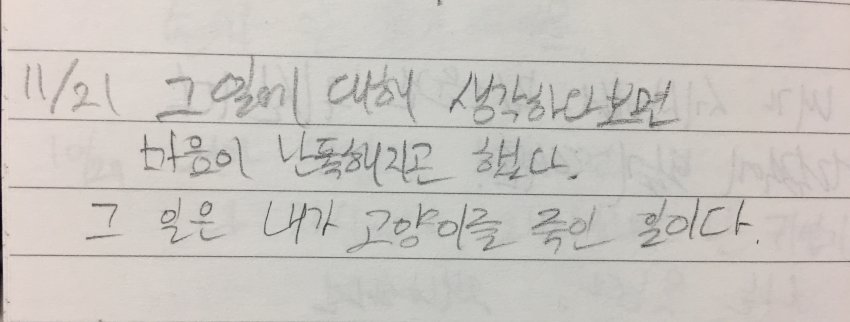 11/21 그 일에 대해 생각하다보면
마음이 난폭해지곤 했다.
그 일은 내가 고양이를 죽인 일이다.